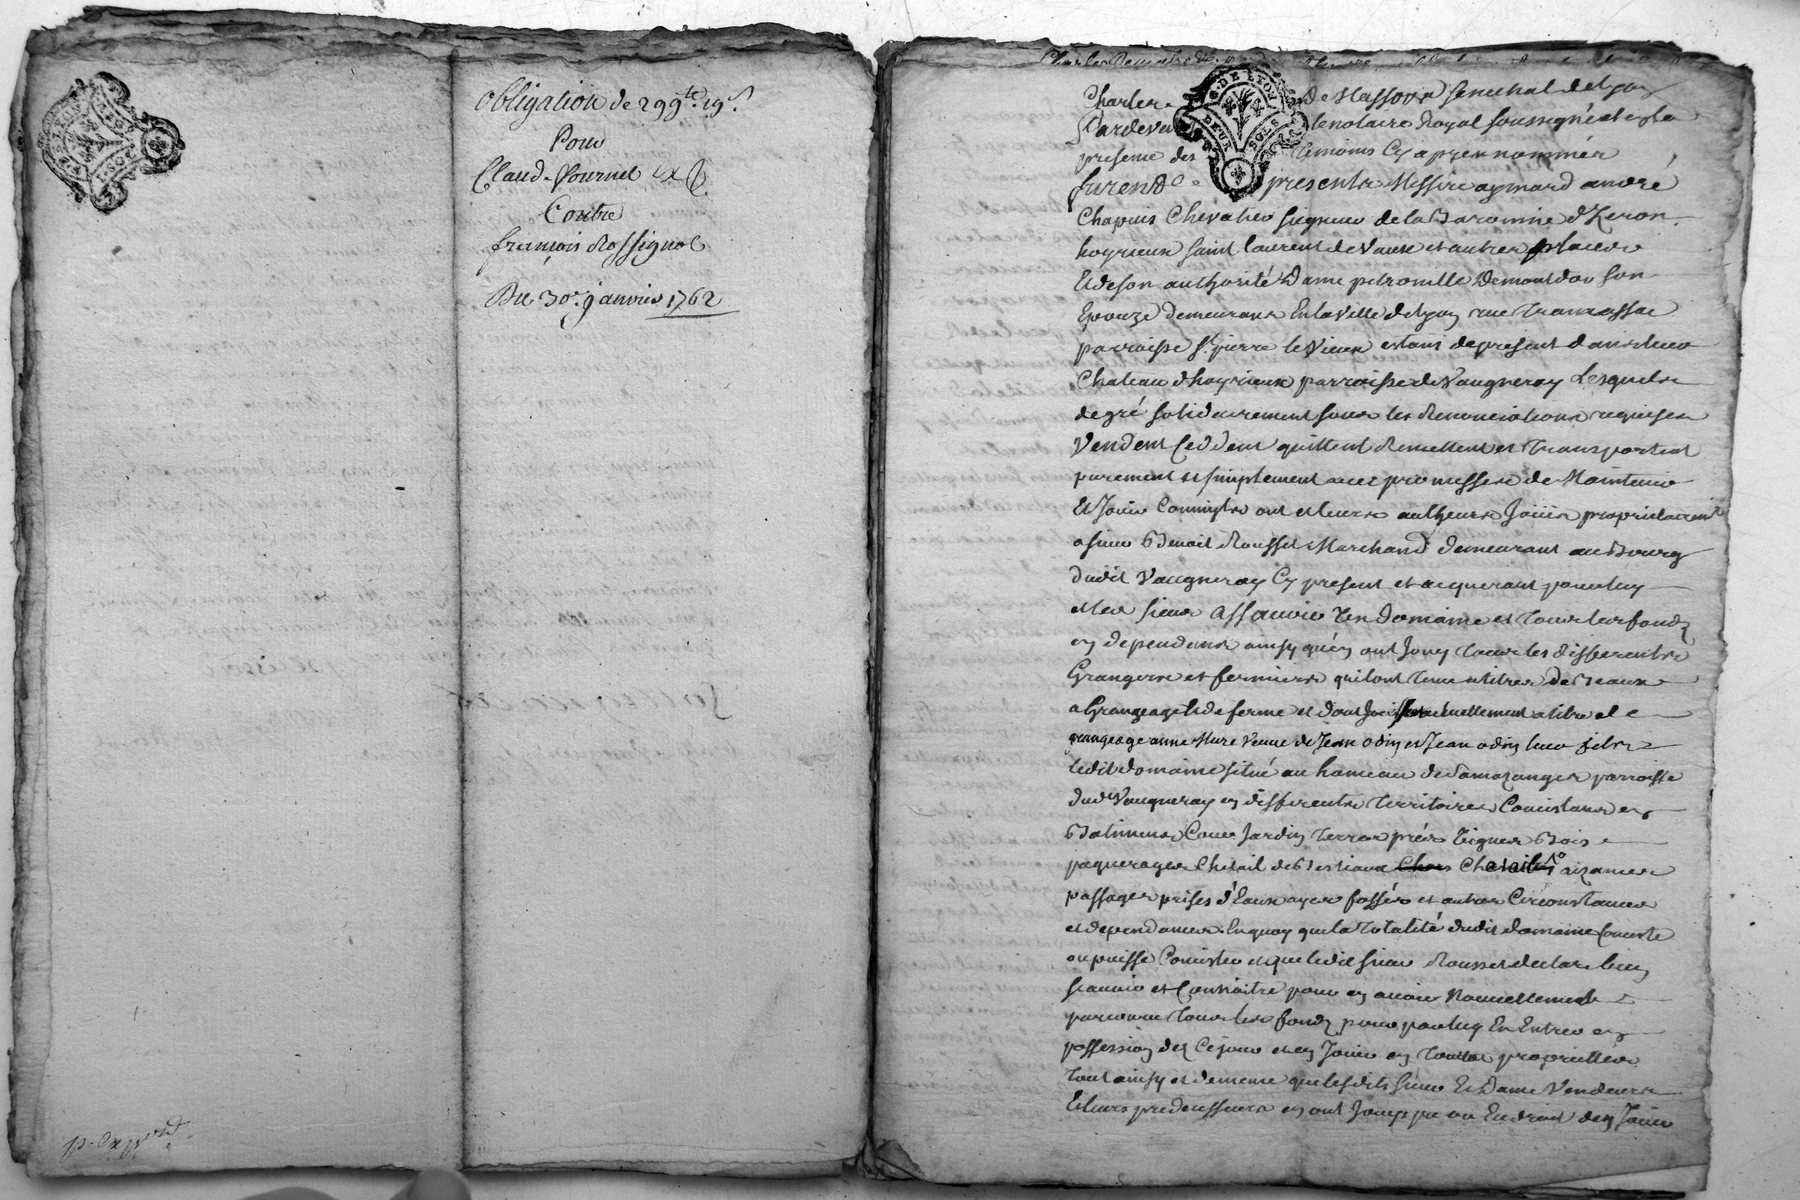 Obligation de 299ᵗᵗ 19ˢ
Pour
Claud. Vournel
Contre
françois Rossignol
Du 30ᵉ janvier 1762
p. Expe
G. DE LYON
DEUX SOLS
Charles de Massoud senechal de Lyon
Pardevant le notaire Royal soussigné et en la
presence des temoins Cy apres nommés
furent presents Messire aymard andré
Chapuis Chevalier seigneur de la Baronnie d'Izeron
hoyrieux saint laurent de Vaux et autres places
Et de son authorité Dame petronille Demontdor son
Epouze demeurans En la Ville de Lyon rue Tramassac
parroisse St. pierre le Vieux estant de present dans leur
Chateau d'hoyrieux parroisse de Vaugneray Lesquels
de gré solidairement sous les Renonciations requises
Vendent Ceddent quittent Remettent et Transportent
purement et simplement avec promesses de Maintenir
Et Jouir Comm'ils ont et leurs autheurs Joüis proprietairemt
a sieur Benoit Rousset Marchand demeurant au Bourg
dudit Vaugneray Cy present et acquerant pour luy
et les siens assavoir Un Domaine et Tous les fonds
en dependans ainsy qu'en ont Jouy Tous les differents
Grangers et fermiers qui l'ont Tenu a titres de Beaux
a Grangeage Et de ferme et dont Jouissent actuellement a titre de
grangeage anne Mure Veuve de Jean odin et Jean odin leur fils
ledit domaine situé au hameau de parroisse
dudt Vaugneray en differents Territoires Consistans en
Batimens Cour Jardin Terres prés Vignes Bois
paquerages Chetail de Bestiaux aizances
passages prises d'Eaux ayes fossés et autres Circonstances
et dependances. En quoy que la Totalité dudit domaine Consiste
ou puisse Consister et que ledit sieur Rousset declare bien
scavoir et Connaitre pour en avoir Nouvellement
parcouru Tous les fonds pour par luy En Entrer en
possession dez Ce jour et en Jouir en Toutes proprieté
Tout ainsy et de meme que lesdits sieur Et Dame Vendeurs
Et leurs predecesseurs en ont Jouy pu ou Eu droit d'en Jouir